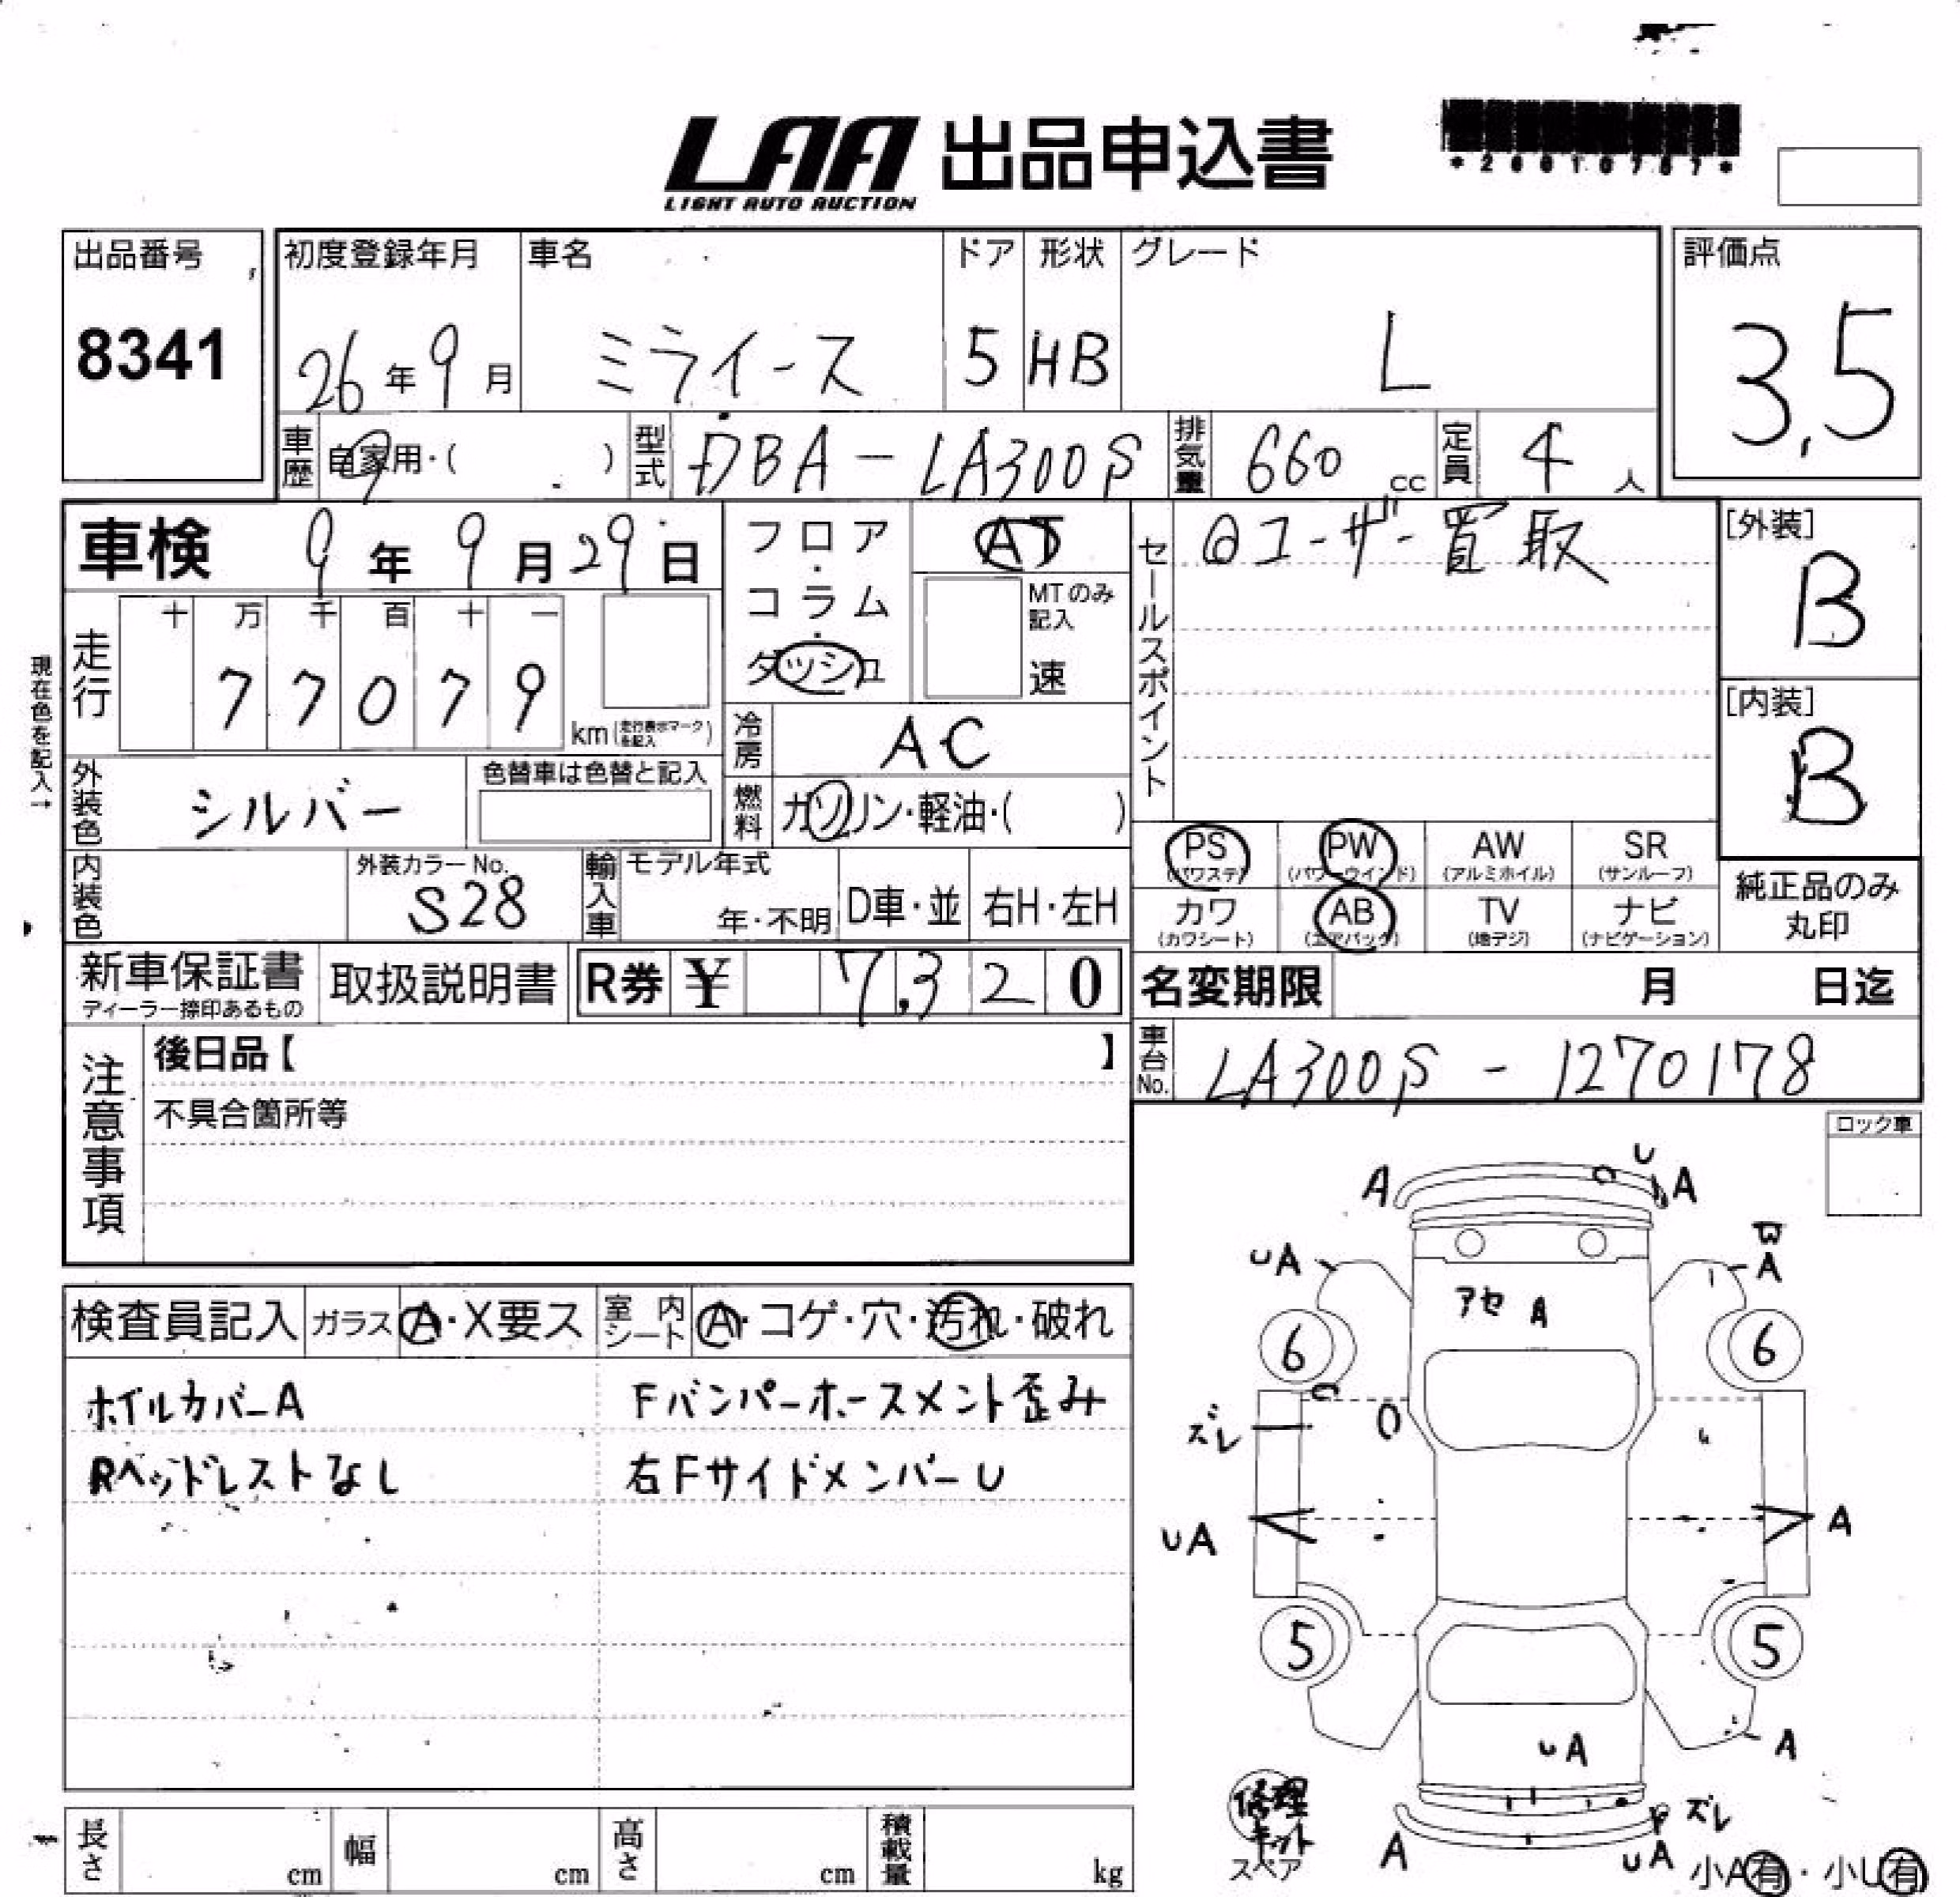 LAA 出品申込書
LIGHT AUTO AUCTION
*20010767*
出品番号
8341
初度登録年月 車名 ドア 形状 グレード
26年9月 ミライース 5 HB L
評価点
3,5
車歴 自家用・( ) 型式 DBA-LA300S 排気量 660 cc 定員 4人
車検 9年9月29日
フロア・コラム・ダッシュ
AT
MTのみ記入
速
セールスポイント
◎ユーザー買取
[外装]
B
[内装]
B
現在色を記入→
走行 十 万 千 百 十 一
7 7 0 7 9 km(走行表示マークを記入)
冷房 AC
外装色 シルバー 色替車は色替と記入
燃料 ガソリン・軽油・( )
PS (パワステ) PW (パワーウインド) AW (アルミホイル) SR (サンルーフ)
カワ (カワシート) AB (エアバック) TV (地デジ) ナビ (ナビゲーション)
純正品のみ丸印
内装色 外装カラーNo. S28 輸入車 モデル年式 年・不明 D車・並 右H・左H
新車保証書 ディーラー捺印あるもの 取扱説明書 R券 ¥ 7,320
名変期限 月 日迄
車台No. LA300S - 1270178
注意事項
後日品【 】
不具合箇所等
ロック車
検査員記入 ガラス A・X要ス 室内シート A・コゲ・穴・汚れ・破れ
ホイルカバーA Fバンパーホースメント歪み
Rヘッドレストなし 右FサイドメンバーU
A U A
UA A
アセ A
6 6
ズレ
UA A
5 5
UA A
修理キット
スペア
A ズレ
UA
小A有・小U有
長さ cm 幅 cm 高さ cm 積載量 kg